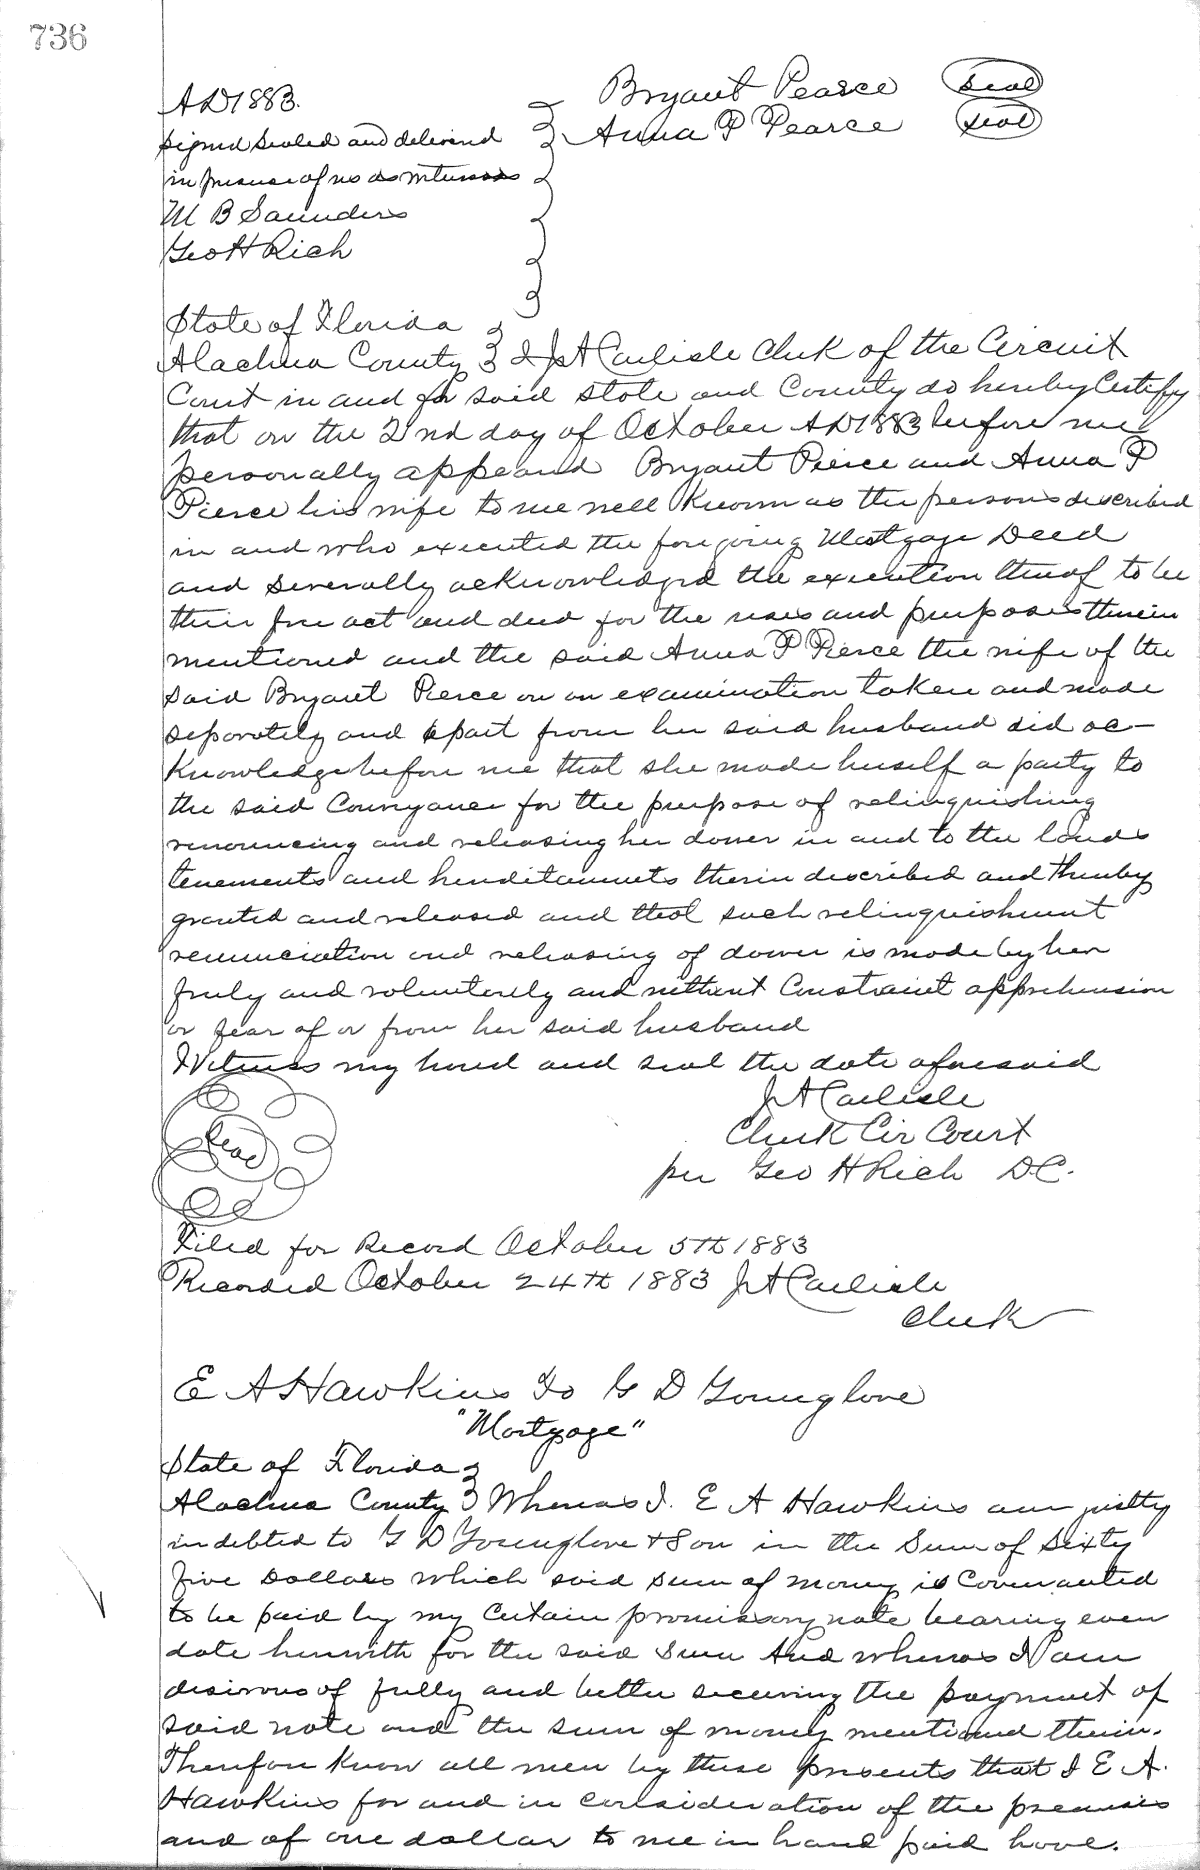 736
AD1883.
Bryant Pearce Seal
Anna P Pearce Seal
signed sealed and delivered
in presence of us as witnesses
M B Saunders
Geo H Rich
State of Florida
Alachua County I J A Carlisle Clerk of the Circuit
Court in and for said State and County do hereby Certify
that on the 2nd day of October AD1883 before me
personally appeared Bryant Pierce and Anna P
Pierce his wife to me well known as the persons described
in and who executed the foregoing Mortgage Deed
and severally acknowledged the execution thereof to be
their free act and deed for the uses and purposes therein
mentioned and the said Anna P Pierce the wife of the
said Bryant Pierce on an examination taken and made
separately and apart from her said husband did ac-
knowledge before me that she made herself a party to
the said Conveyance for the purpose of relinquishing
renouncing and releasing her dower in and to the lands
tenements and hereditaments therein described and thereby
granted and released and that such relinquishment
renunciation and releasing of dower is made by her
freely and voluntarily and without Constraint apprehension
or fear of or from her said husband
Witness my hand and seal the date aforesaid
J A Carlisle
Seal
Clerk Cir Court
per Geo H Rich D.C.
Filed for Record October 5th 1883
Recorded October 24th 1883 J A Carlisle
Clerk
E A Hawkins To G D Younglove
"Mortgage"
State of Florida
Alachua County Whereas I. E A Hawkins am justly
indebted to G D Younglove & Son in the Sum of Sixty
five Dollars which said sum of money is Covenanted
to be paid by my Certain promissory note bearing even
date herewith for the said Sum And whereas I am
desirous of fully and better securing the payment of
said note and the sum of money mentioned therein.
Therefore know all men by these presents that I E A.
Hawkins for and in consideration of the premises
and of one dollar to me in hand paid have.